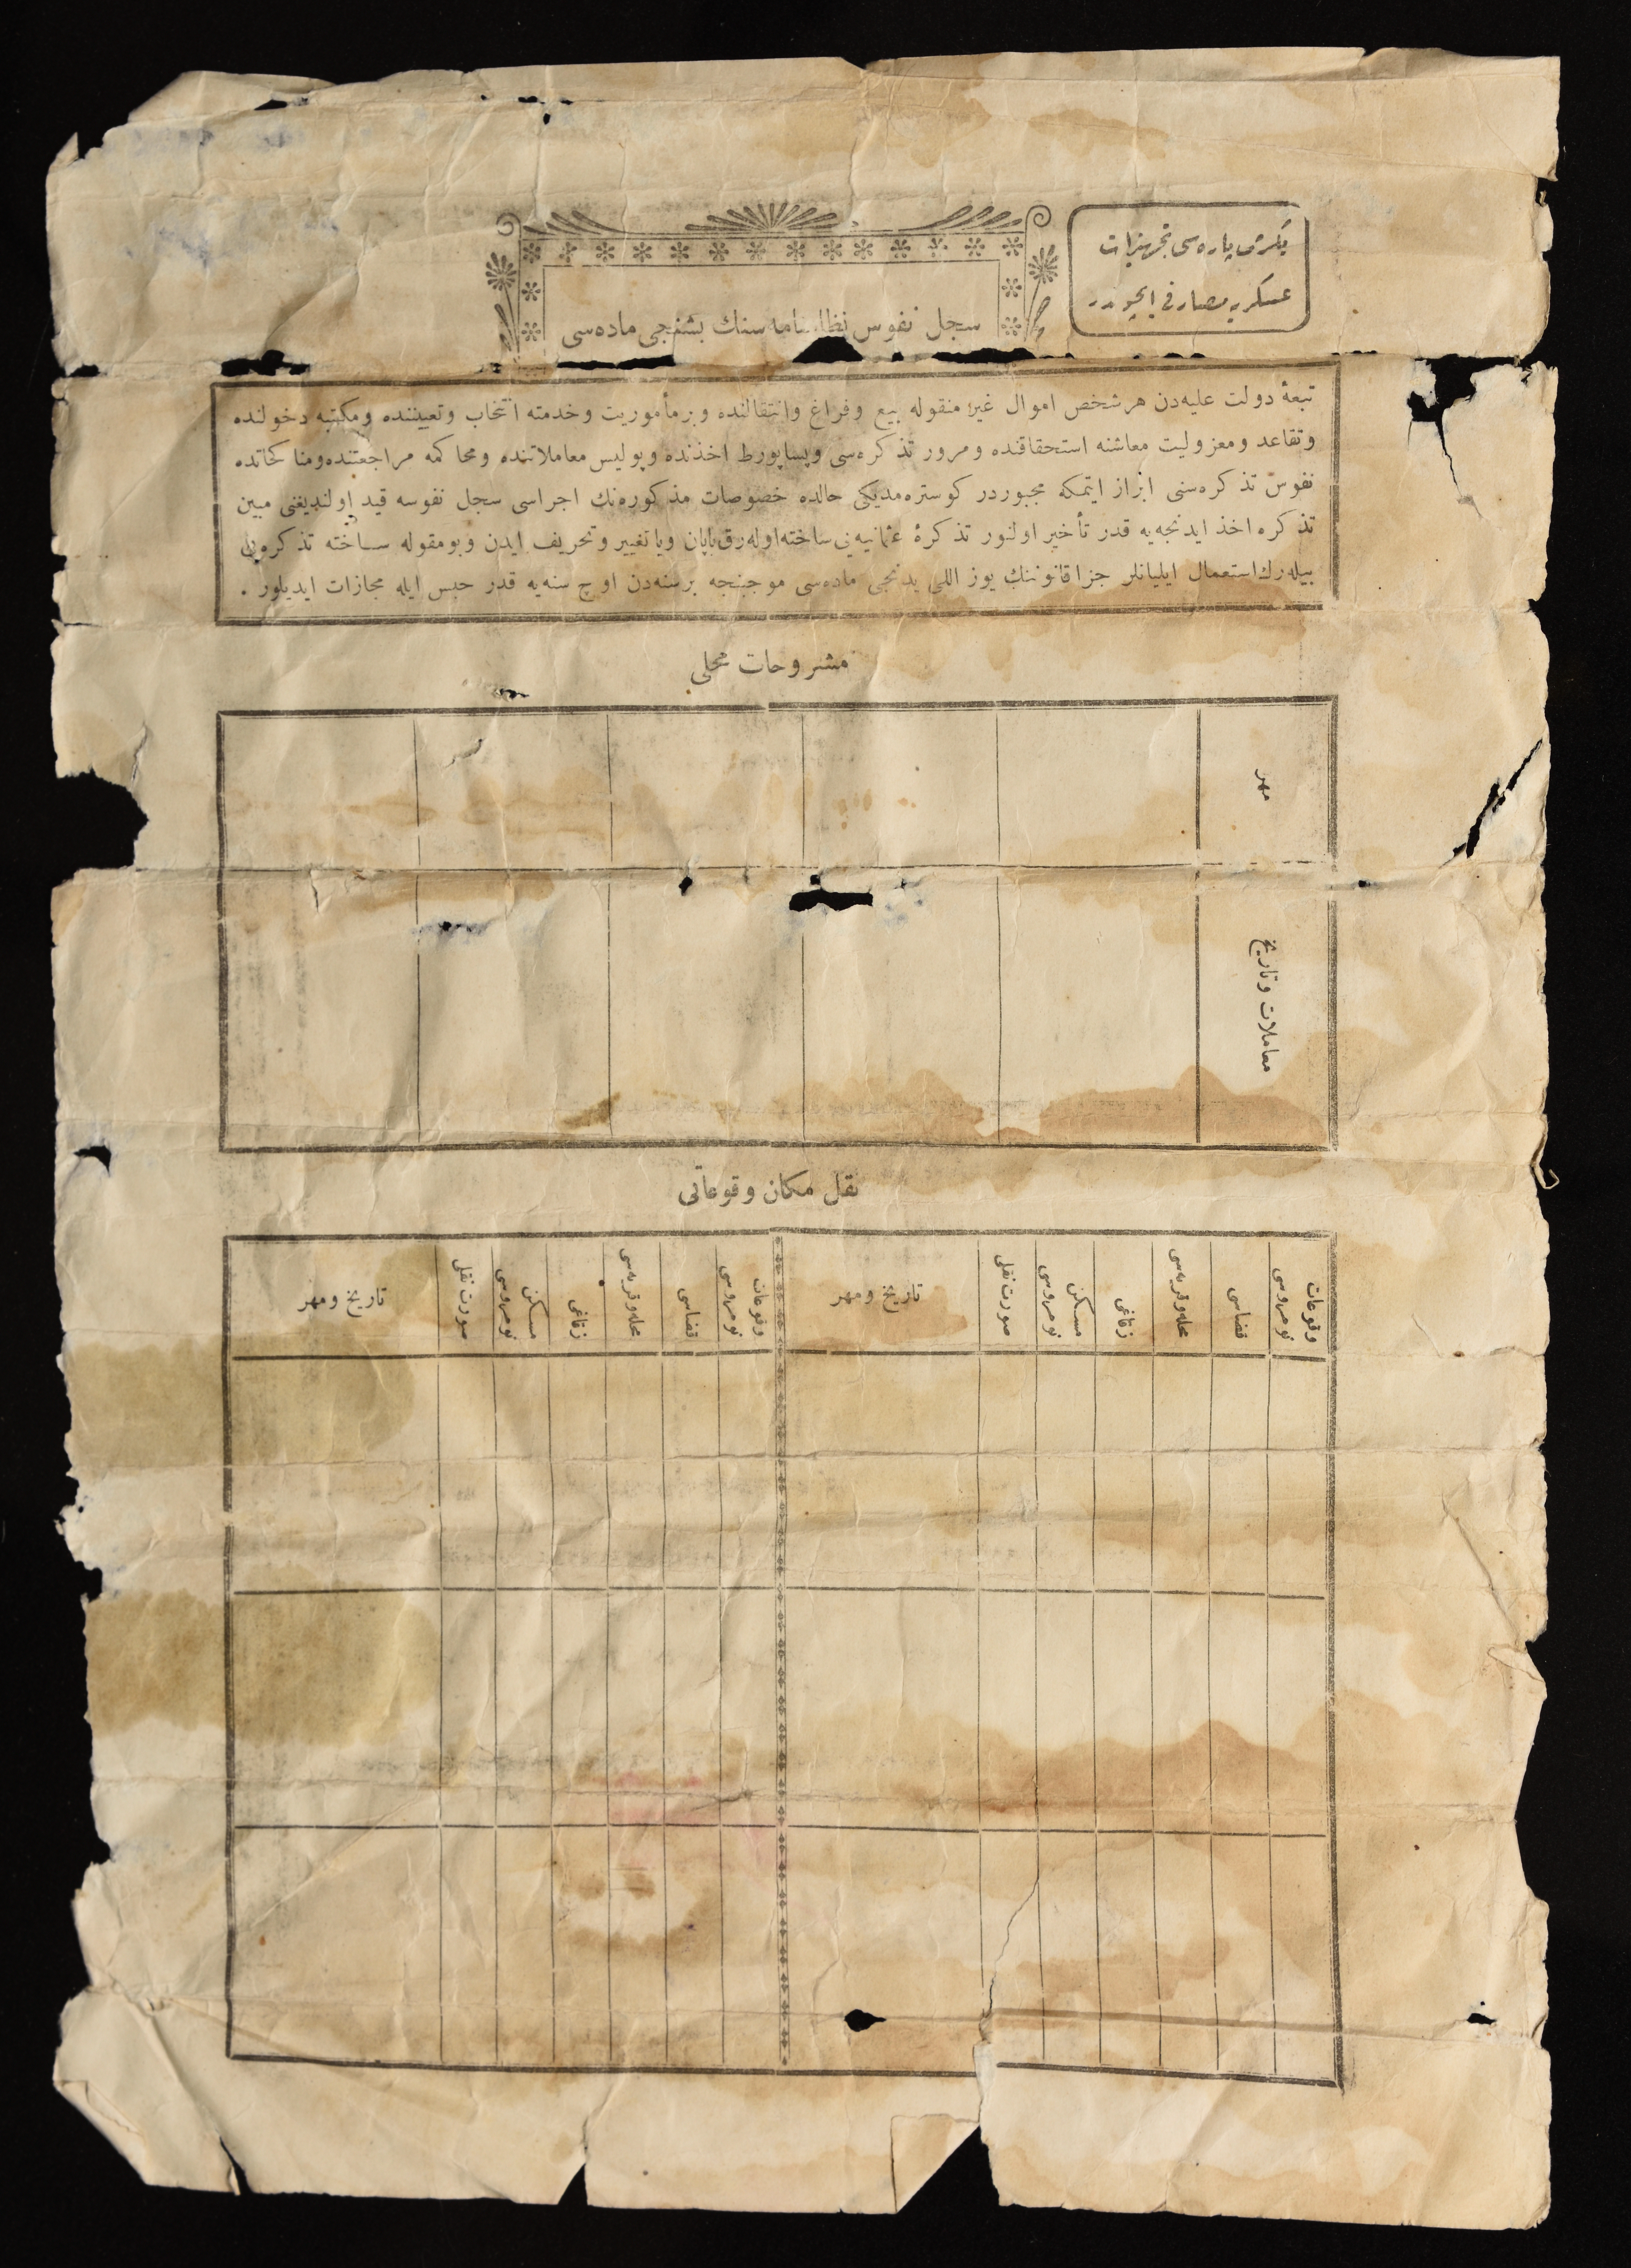 یكرمی پاره‌سی تجهیزات
عسكریه مصارفی ایچوندر
سجل نفوس نظامنامه سنك بشنجی ماده‌سی
تبعهٔ دولت علیه‌دن هرشخص اموال غیر منقوله بیع وفراغ وانتقالنده وبرمأموریت وخدمته انتخاب وتعییننده ومكتبه دخولنده
وتقاعد ومعزولیت معاشنه استحقاقنده ومرور تذكره‌سی وپساپورط اخذنده وپولیس معاملاتنده ومحاكمه مراجعتنده ومناكحاتده
نفوس تذكره‌سنی ابراز ایتمكه مجبوردر كوستره‌مدیكی حالده خصوصات مذكوره‌نك اجراسی سجل نفوسه قید اولندیغنی مبین
تذكره اخذ ایدنجه‌یه قدر تأخیر اولنور تذكرهٔ عثمانیه‌یی ساخته‌اوله‌رق یاپان ویا تغییر وتحریف ایدن وبومقوله ساخته تذكره‌یی
بیله‌رك استعمال ایلیانلر جزا قانوننك یوز اللی یدنجی ماده‌سی موجبنجه برسنه‌دن اوچ سنه‌یه قدر حبس ایله مجازات ایدیلور .
مشروحات محلی
مهر
معاملات وتاریخ
نقل مكان وقوعاتی
وقوعات نومروسی
قضاسی
محله‌وقریه‌سی
زقاغی
مسكن نومروسی
صورت نقلی
تاریخ ومهر
وقوعات نومروسی
قضاسی
محله‌وقریه‌سی
زقاغی
مسكن نومروسی
صورت نقلی
تاریخ ومهر